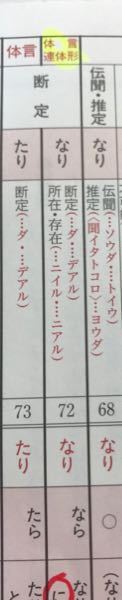 伝聞・推定
なり
伝聞(…ソウダ・…トイウ)
推定(〈聞イタトコロ〉…ヨウダ)
68
なり
○
(な
体言
連体形
断定
なり
断定(…ダ・…デアル)
所在・存在(…ニイル・…ニアル)
72
なり
なら
に
な
体言
たり
断定(…ダ・…デアル)
73
たり
たら
と
た